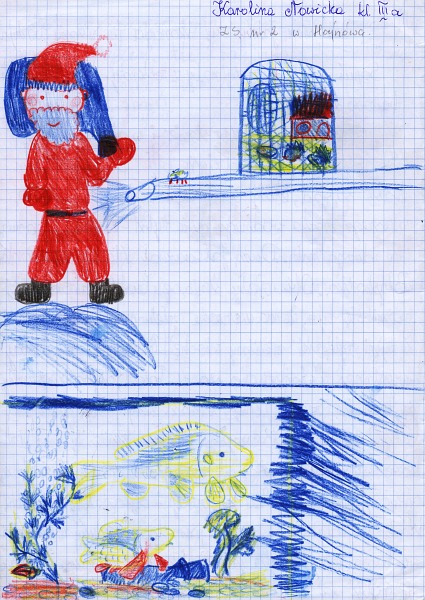 Karolina Nowicka kl. III a
ZS nr 2 w Hajnówa.